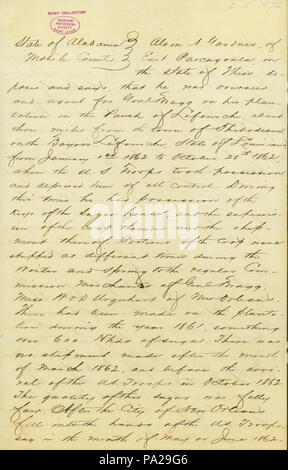 State of Alabama } Alvin N Gardner, of
Mobile County } East Pascagoula, in
the State of Miss. de-
poses and says, that he was overseer
and agent for Genl Bragg on his plan-
tation in the Parish of Lafourche about
three miles from the town of Thibodeaux
on the Bayou Lafourche, State of Louisiana
from January 1st 1862 to October 28th 1862,
when the U S Troops took possession
and deprived him of all control. During
this time he had possession of the
Keys of the Sugar house, and the supervis-
ion of the Crop
shipped at different times during the
Winter and Spring to the regular Com-
mission Merchants of Genl Bragg,
Mess. W & D Urquhart of New Orleans.
There had been made on the planta-
tion during the year 1861, something
over 600 Hhds of sugar. There was
no shipment made after the month
of March 1862, and before the arri-
val of the US Troops in October 1862
The quality of this sugar was fully
fair. After the City of New Orleans
fell into the hands of the US Troops,
say in the month of May or June 1862
alamy
PA29G6